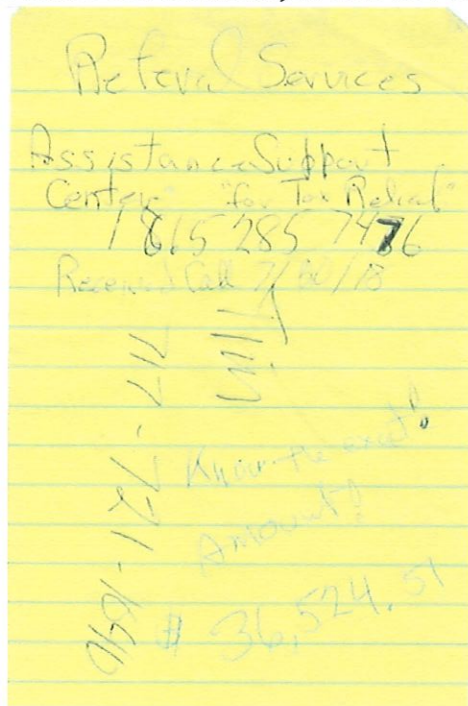 Referal Services
Assistance Support
Center "for Tax Relief"
1 865 285 7476
Received Call 7/30/18
Know the exact!
Amount!
$ 36,524.51